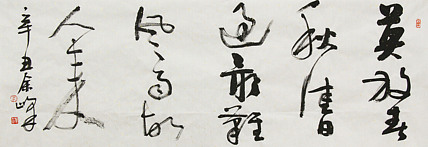 莫放春
秋佳日
過最難
風雨故
人來
辛丑余峰